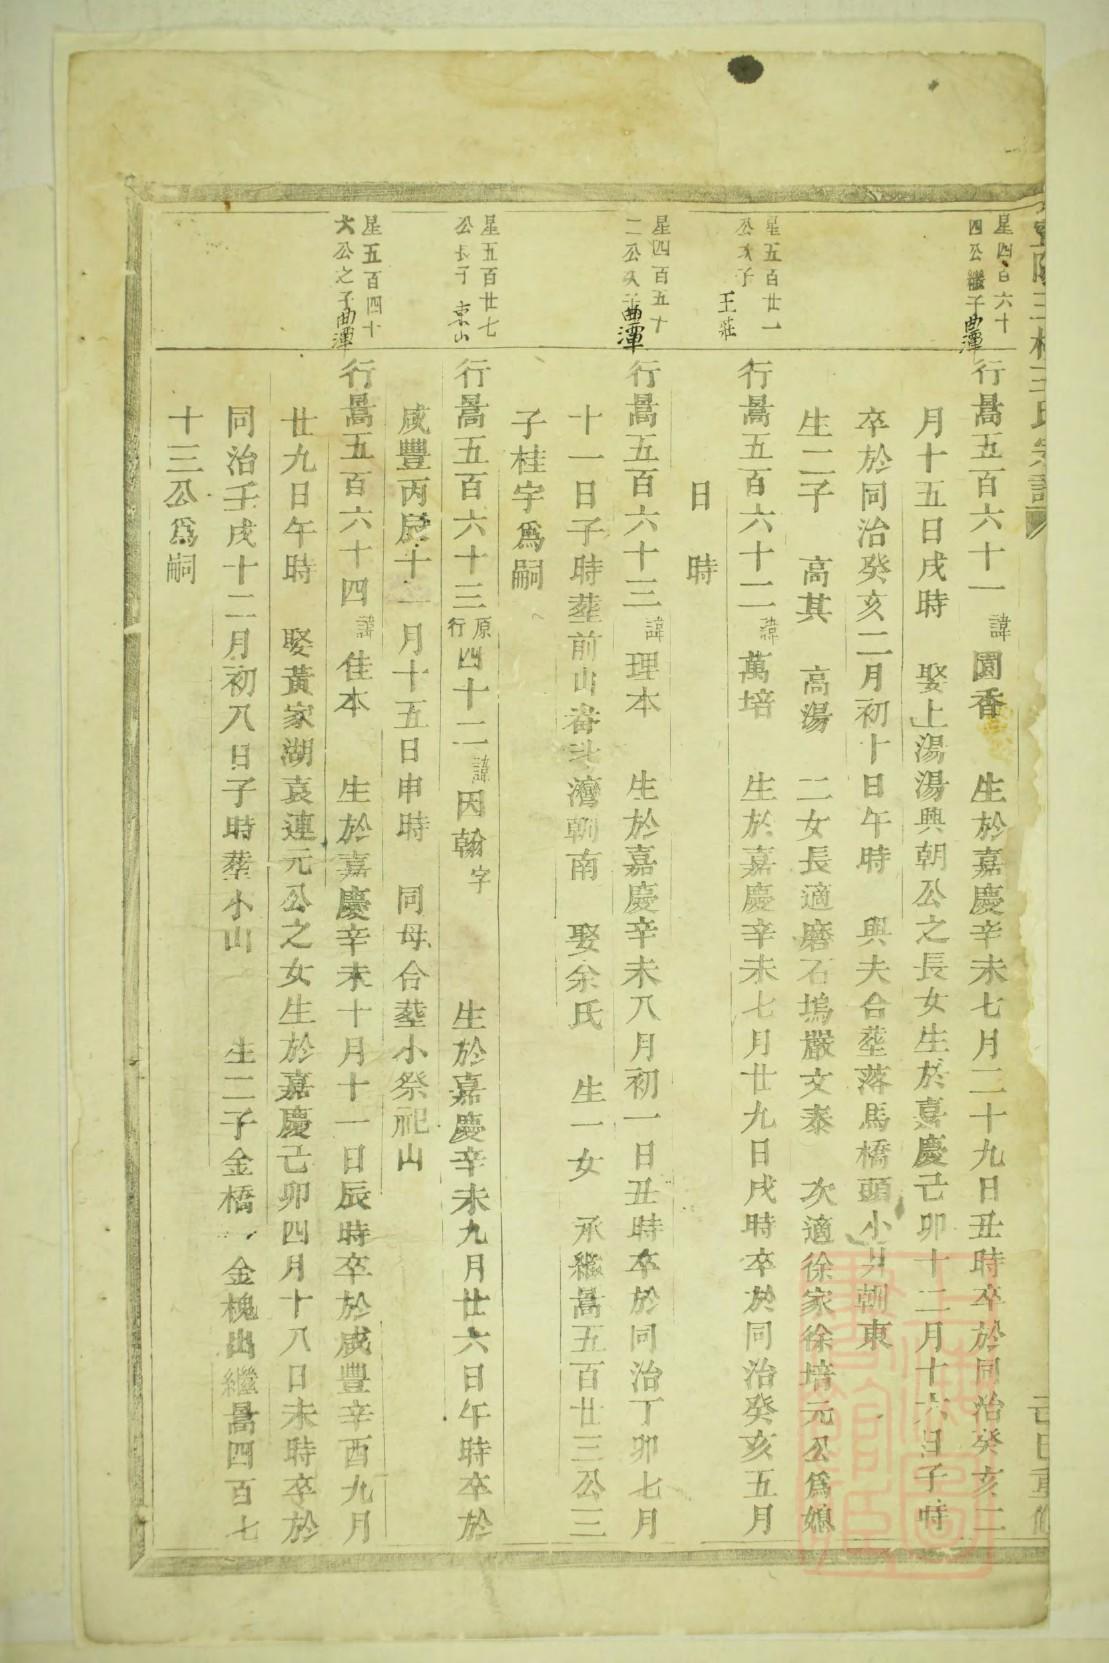 星四百六十
四公繼子曲潭
行暠五百六十一諱園香 生於嘉慶辛未七月二十九日丑時卒於同治癸亥二
月十五日戌時 娶上湯湯興朝公之長女生於嘉慶己卯十二月十六日子時
卒於同治癸亥二月初十日午時 與夫合塟落馬橋頭小朝東
生二子 高其 高湯 二女長適磨石塢嚴文泰 次適徐家徐培元公爲媳
星五百廿一
公次子 王莊
行暠五百六十二諱萬培 生於嘉慶辛未七月廿九日戌時卒於同治癸亥五月
日 時
星四百五十
二公次子曲潭
行暠五百六十三諱理本 生於嘉慶辛未八月初一日丑時卒於同治丁卯七月
十一日子時塟前山灣朝南 娶余氏 生一女 承繼暠五百廿三公三
子桂宇爲嗣
星五百廿七
公長子 東山
行暠五百六十三原行四十二諱因翰字 生於嘉慶辛未九月廿六日午時卒於
咸豐丙辰十二月十五日申時 同母合塟小祭祀山
星五百四十
六公之子曲潭
行暠五百六十四諱佳本 生於嘉慶辛未十月十一日辰時卒於咸豐辛酉九月
廿九日午時 娶黃家湖袁連元公之女生於嘉慶己卯四月十八日未時卒於
同治壬戌十二月初八日子時塟小山 生二子金橋 金槐出繼暠四百七
十三公爲嗣